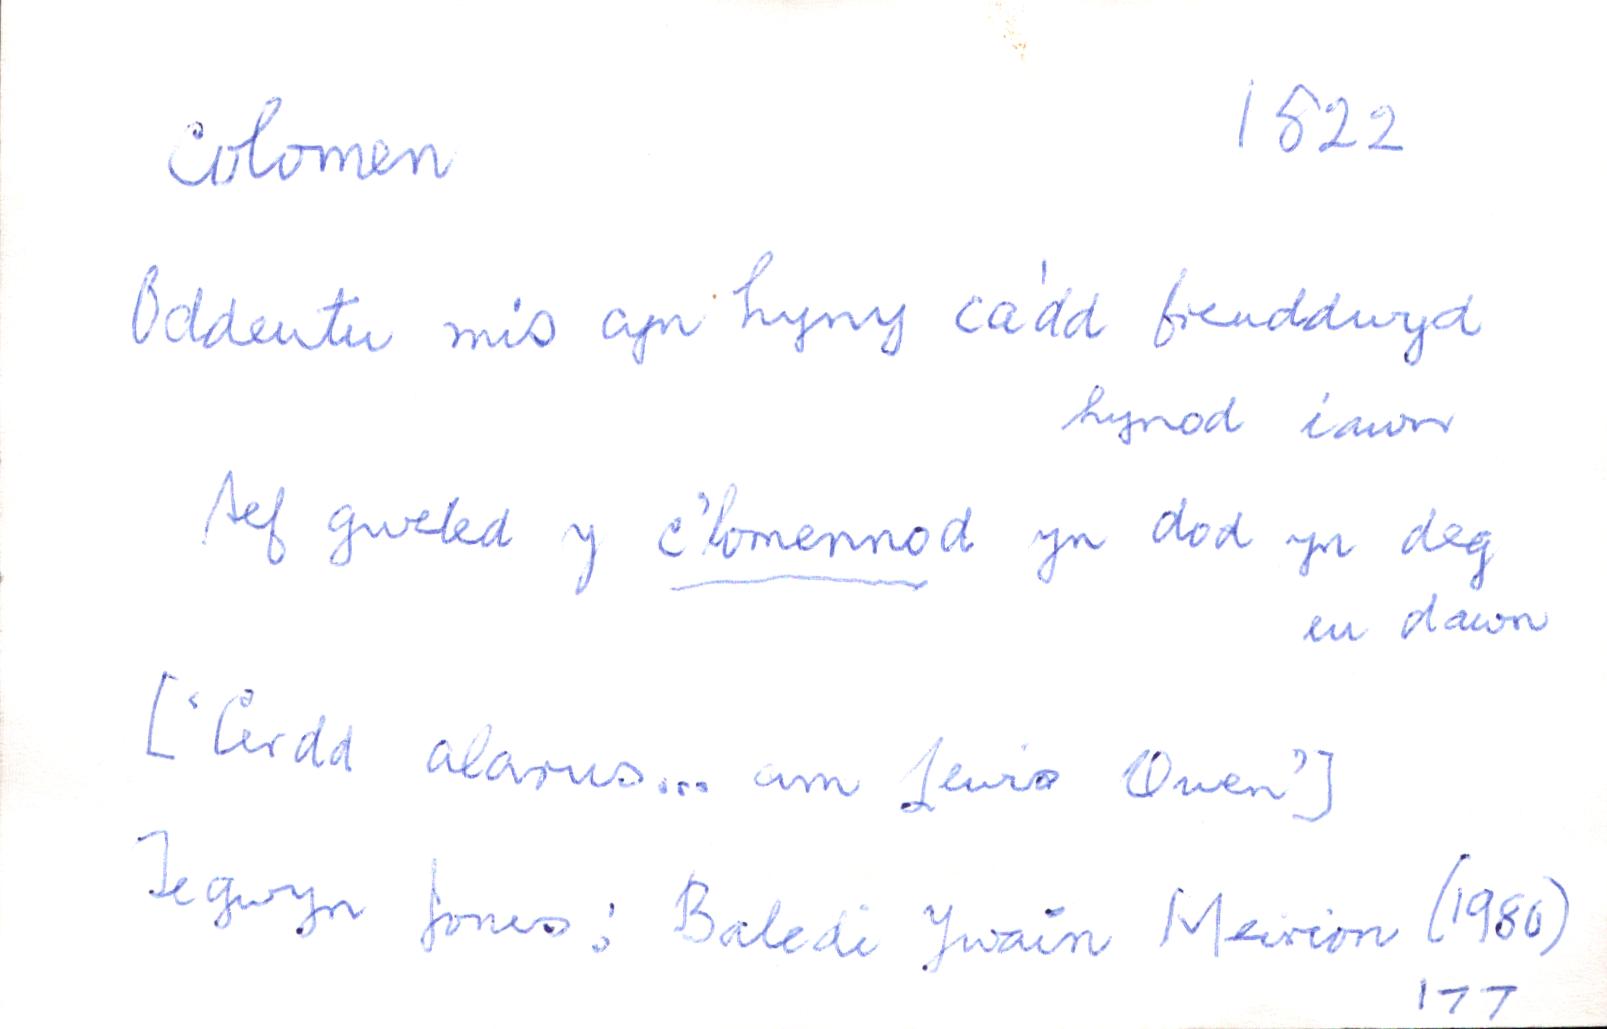 colomen 1822
Oddeutu mis cyn hyny ca'dd freuddwyd
hynod iawn
Sef gweled y c'lomennod yn dod yn deg
eu dawn
['Cerdd alarus... am Lewis Owen']
Tegwyn Jones: Baledi Ywain Meirion (1980)
177